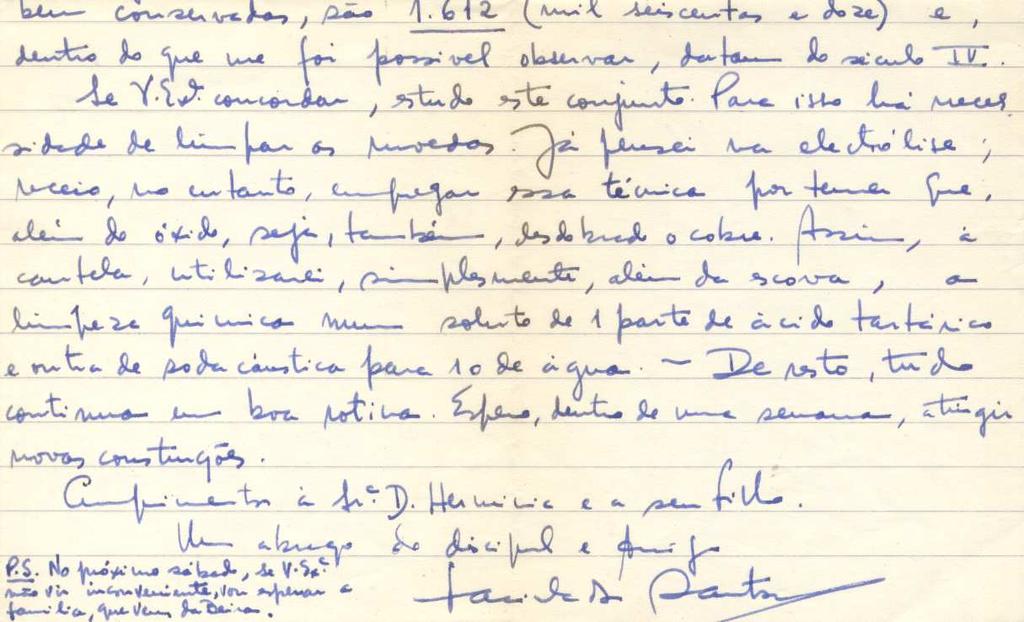 bem conservadas, são 1.612 (mil seiscentas e doze) e,
dentro do que me foi possível observar, datam do século IV.
Se V. Ex.ª concordar, estudo este conjunto. Para isso há neces
sidade de limpar as moedas. Já pensei na electrólise;
receio, no entanto, empregar essa técnica por temer que,
além do óxido, seja, também, desdobrado o cobre. Assim, à
cautela, utilizarei, simplesmente, além da escova, a
limpeza química num soluto de 1 parte de ácido tartárico
e outra de soda cáustica para 10 de água. — De resto, tudo
continua em boa rotina. Espero, dentro de uma semana, atingir
novas construções.
Cumprimentos à Sr.ª D. Hermínia e a seu filho.
Um abraço do discípulo e Amigo
P.S. No próximo sábado, se V. Ex.ª
não vir inconveniente, vou esperar a
família, que vem da Beira.